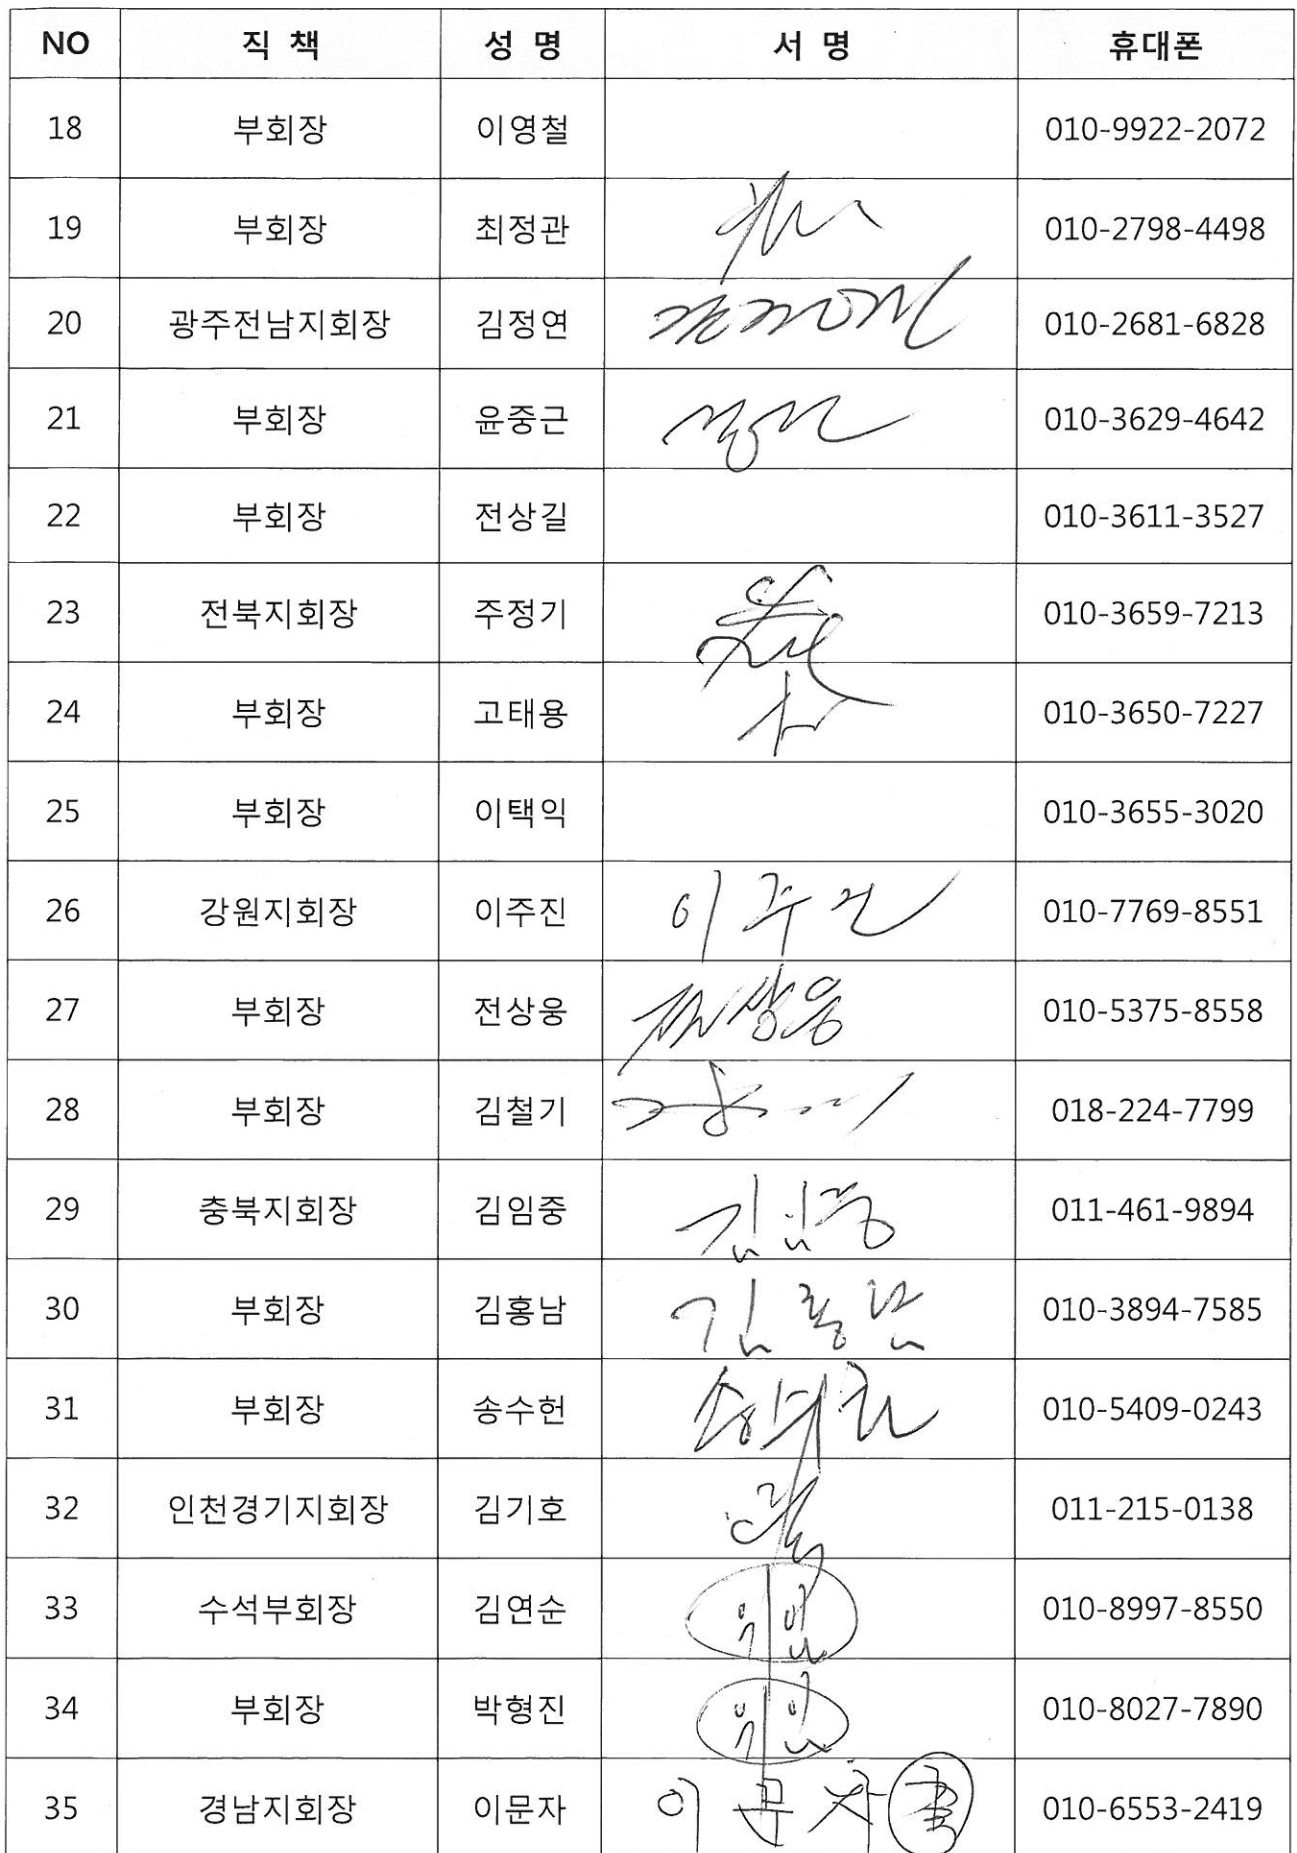 NO 직 책 성 명 서 명 휴대폰
18 부회장 이영철 010-9922-2072
19 부회장 최정관 010-2798-4498
20 광주전남지회장 김정연 010-2681-6828
21 부회장 윤중근 010-3629-4642
22 부회장 전상길 010-3611-3527
23 전북지회장 주정기 010-3659-7213
24 부회장 고태용 010-3650-7227
25 부회장 이택익 010-3655-3020
26 강원지회장 이주진 이주진 010-7769-8551
27 부회장 전상웅 전상웅 010-5375-8558
28 부회장 김철기 018-224-7799
29 충북지회장 김임중 김임중 011-461-9894
30 부회장 김홍남 김홍남 010-3894-7585
31 부회장 송수헌 송수헌 010-5409-0243
32 인천경기지회장 김기호 011-215-0138
33 수석부회장 김연순 위임 010-8997-8550
34 부회장 박형진 위임 010-8027-7890
35 경남지회장 이문자 이문자 010-6553-2419